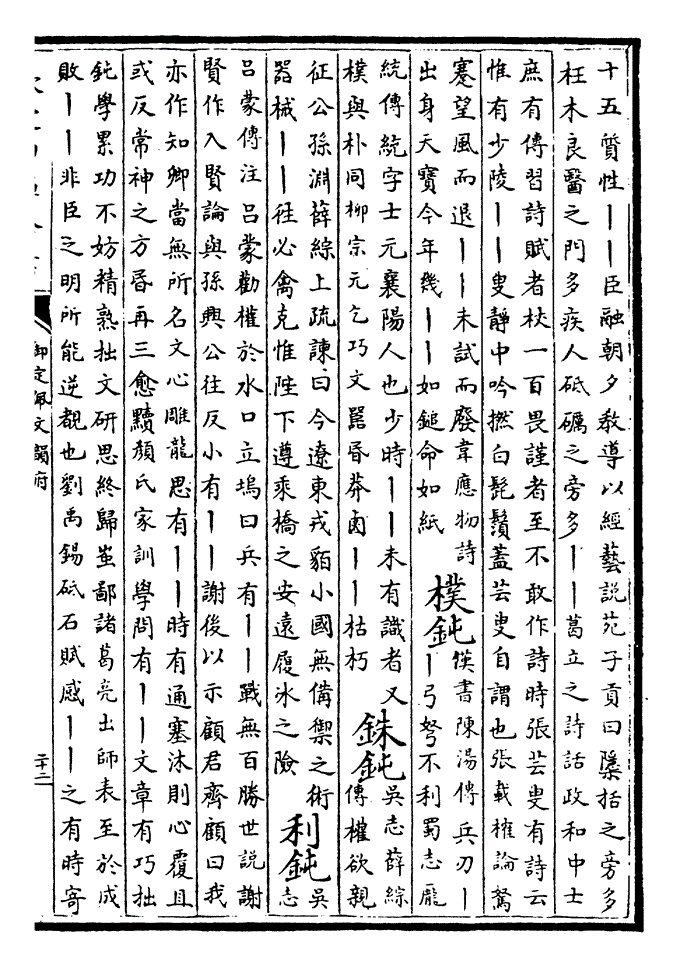 十五質性丨丨臣融朝夕教導以經藝說苑子貢曰隱括之旁多
枉木良醫之門多疾人砥礪之旁多丨丨葛立之詩話政和中士
庶有傳習詩賦者杖一百畏謹者至不敢作詩時張芸叟有詩云
惟有少陵丨丨叟靜中吟撚白髭鬚蓋芸叟自謂也張載榷論駑
蹇望風而退丨丨未試而廢韋應物詩
出身天寶今年幾丨丨如鎚命如紙
樸鈍漢書陳湯傳兵刃丨
丨弓弩不利蜀志龐
統傳統字士元襄陽人也少時丨丨未有識者又
樸與朴同柳宗元乞巧文嚚昏莽鹵丨丨枯朽
銖鈍吳志薛綜
傳權欲親
征公孫淵薛綜上疏諫曰今遼東戎貊小國無備禦之術
器械丨丨往必禽克惟陛下遵乘橋之安遠履冰之險
利鈍吳
志
呂蒙傳注呂蒙勸權於水口立塢曰兵有丨丨戰無百勝世說謝
賢作入賢論與孫興公往反小有丨丨謝後以示顧君齊顧曰我
亦作知卿當無所名文心雕龍思有丨丨時有通塞沐則心覆且
或反常神之方昏再三愈黷顏氏家訓學問有丨丨文章有巧拙
鈍學累功不妨精熟拙文研思終歸蚩鄙諸葛亮出師表至於成
敗丨丨非臣之明所能逆覩也劉禹錫砥石賦感丨丨之有時寄
御定佩文韻府
二十二